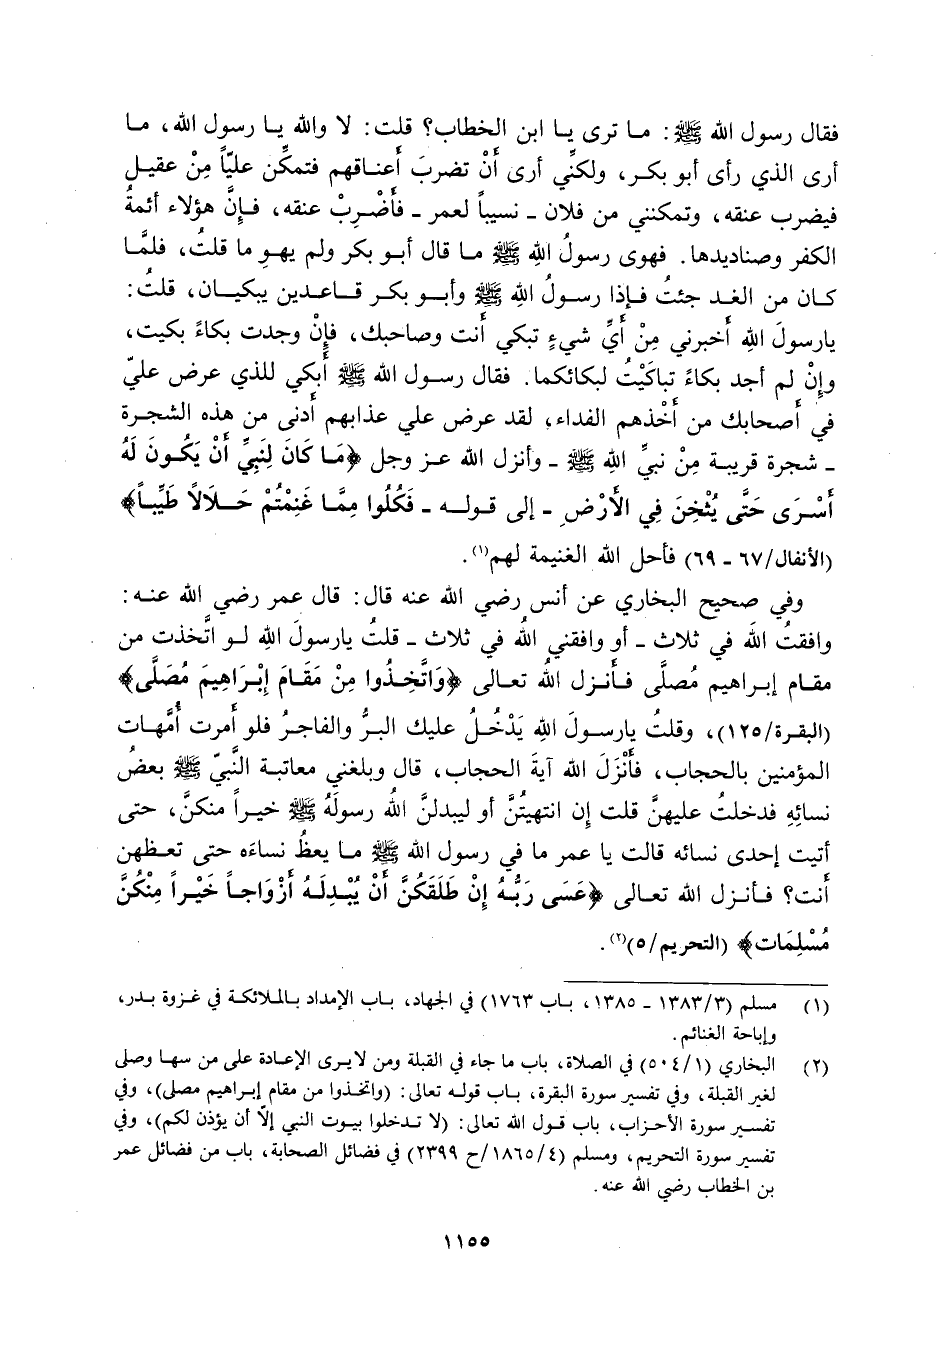 فقال رسول الله ﷺ: ما ترى يا ابن الخطاب؟ قلت: لا والله يا رسول الله، ما
أرى الذي رأى أبو بكر، ولكنِّي أرى أَنْ تضربَ أَعناقهم فتمكِّن عليّاً مِنْ عقيل
فيضرب عنقه، وتمكنني من فلان ـ نسيباً لعمر ـ فأَضْرِبْ عنقه، فإنَّ هؤلاء أئمةُ
الكفر وصناديدها. فهوى رسولُ اللهِ ﷺ ما قال أبو بكر ولم يهوِ ما قلتُ، فلمَّا
كان من الغد جئتُ فإذا رسولُ اللهِ ﷺ وأبو بكر قاعدين يبكيان، قلتُ:
يارسولَ اللهِ أَخبرني مِنْ أَيِّ شيءٍ تبكي أَنت وصاحبك، فإِنْ وجدت بكاءً بكيت،
وإِنْ لم أجد بكاءً تباكَيْتُ لبكائكما. فقال رسول الله ﷺ أَبكي للذي عرض عليّ
في أَصحابك من أَخْذهم الفداء، لقد عرض علي عذابهم أَدنى من هذه الشجرة
ـ شجرة قريبة مِنْ نبيِّ اللهِ ﷺ ـ وأنزل الله عز وجل ﴿مَا كَانَ لِنَبِيٍّ أَنْ يَكُونَ لَهُ
أَسْرَى حَتَّى يُثْخِنَ فِي الأَرْضِ ـ إلى قوله ـ فَكُلُوا مِمَّا غَنِمْتُمْ حَلَالاً طَيِّباً﴾
(الأنفال/٦٧ ـ ٦٩) فأحل الله الغنيمة لهم(١).
وفي صحيح البخاري عن أنس رضي الله عنه قال: قال عمر رضي الله عنه:
وافقتُ اللهَ في ثلاث ـ أو وافقني اللهُ في ثلاث ـ قلتُ يارسولَ اللهِ لو اتَّخذت من
مقام إبراهيم مُصلَّى فأنزل اللهُ تعالى ﴿وَاتَّخِذُوا مِنْ مَقَامَ إِبْرَاهِيمَ مُصَلَّى﴾
(البقرة/١٢٥)، وقلتُ يارسولَ اللهِ يَدْخُلُ عليك البرُّ والفاجرُ فلو أَمرت أُمَّهات
المؤمنين بالحجاب، فأَنْزَلَ الله آيةَ الحجاب، قال وبلغني معاتبة النَّبيّ ﷺ بعضُ
نسائِهِ فدخلتُ عليهنَّ قلت إن انتهيتُنَّ أو ليبدلنَّ اللهُ رسولَهُ ﷺ خيراً منكنَّ، حتى
أتيت إحدى نسائه قالت يا عمر ما في رسول الله ﷺ ما يعظُ نساءَه حتى تعظهن
أنت؟ فأنزل الله تعالى ﴿عَسَى رَبُّهُ إِنْ طَلَقَكُنَّ أَنْ يُبْدِلَهُ أَزْوَاجاً خَيْراً مِنْكُنَّ
مُسْلِمَات﴾ (التحريم/٥)(٢).
(١) مسلم (١٣٨٣/٣ ـ ١٣٨٥، باب ١٧٦٣) في الجهاد، باب الإمداد بالملائكة في غزوة بدر،
وإباحة الغنائم.
(٢) البخاري (٥٠٤/١) في الصلاة، باب ما جاء في القبلة ومن لايرى الإعادة على من سها وصلى
لغير القبلة، وفي تفسير سورة البقرة، باب قوله تعالى: (واتخذوا من مقام إبراهيم مصلى)، وفي
تفسير سورة الأحزاب، باب قول الله تعالى: (لا تدخلوا بيوت النبي إلاّ أن يؤذن لكم)، وفي
تفسير سورة التحريم، ومسلم (١٨٦٥/٤/ح ٢٣٩٩) في فضائل الصحابة، باب من فضائل عمر
بن الخطاب رضي الله عنه.
١١٥٥